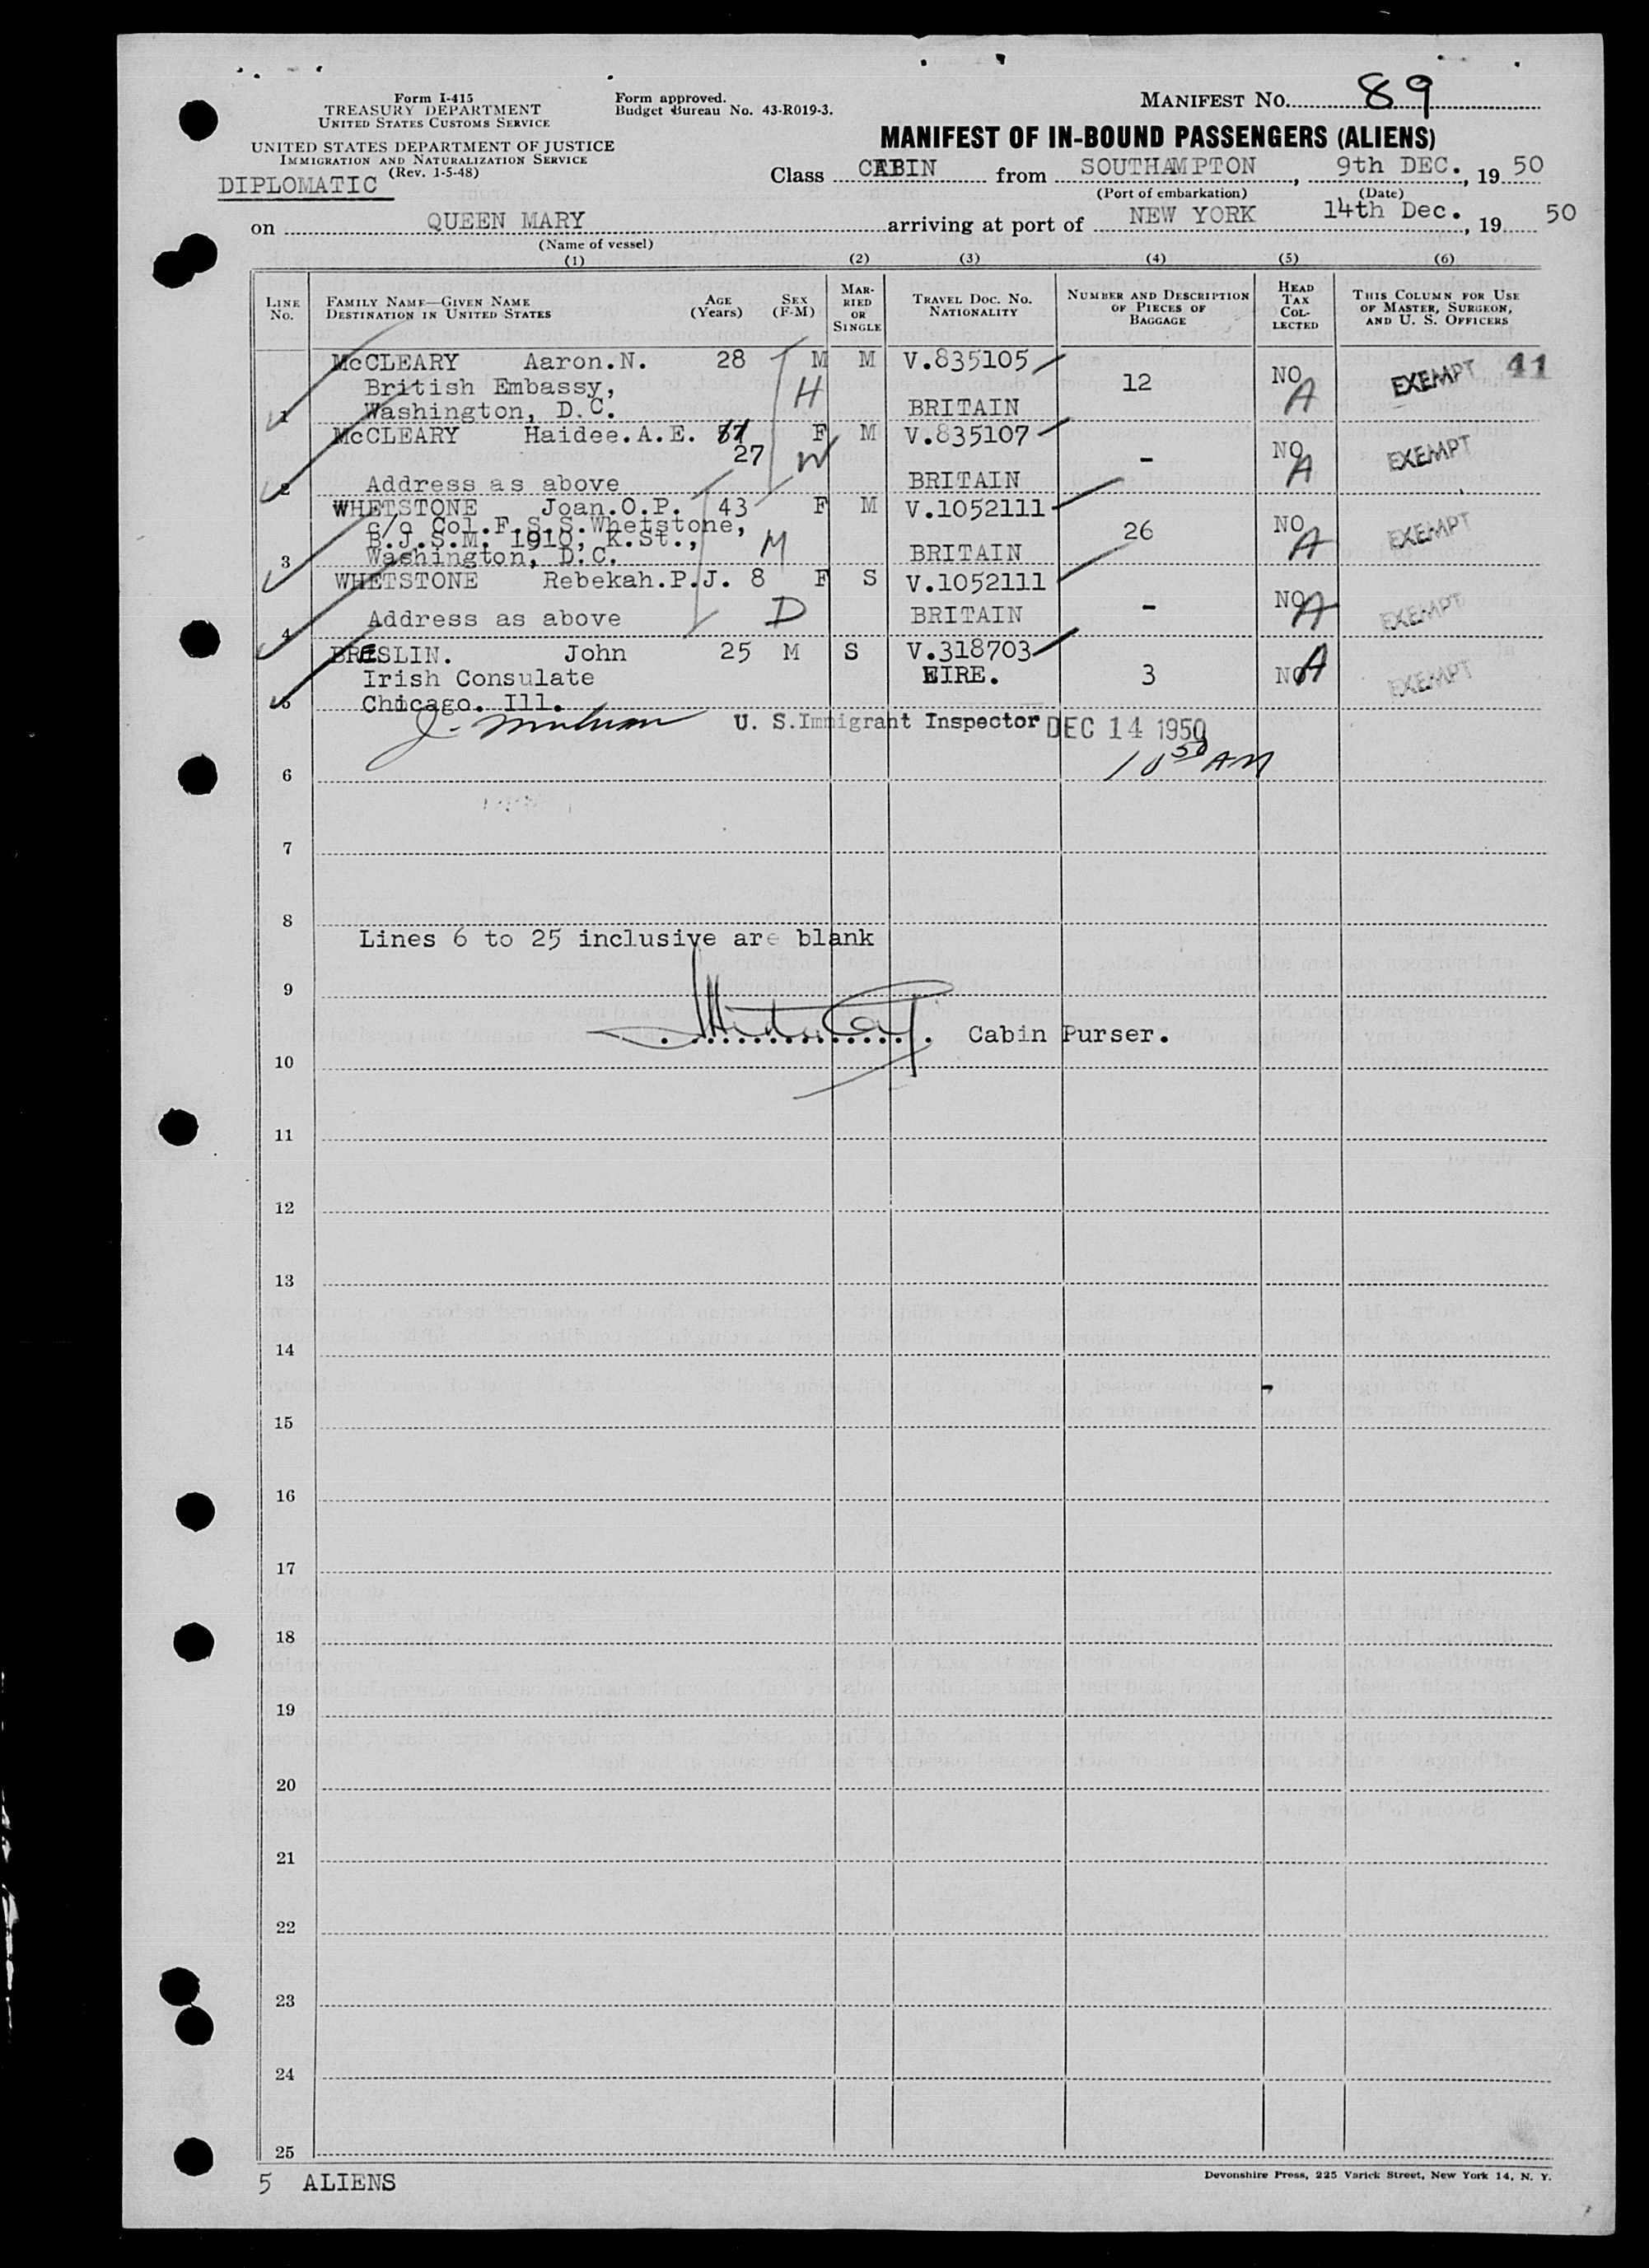 Form I-415
TREASURY DEPARTMENT
UNITED STATES CUSTOMS SERVICE
Form approved.
Budget Bureau No. 43-R019-3.
MANIFEST No. 89
UNITED STATES DEPARTMENT OF JUSTICE
IMMIGRATION AND NATURALIZATION SERVICE
(Rev. 1-5-48)
DIPLOMATIC
MANIFEST OF IN-BOUND PASSENGERS (ALIENS)
Class CABIN from SOUTHAMPTON, 9th DEC., 19 50
(Port of embarkation) (Date)
on QUEEN MARY arriving at port of NEW YORK 14th Dec., 19 50
(Name of vessel)
(1) (2) (3) (4) (5) (6)
LINE No. FAMILY NAME—GIVEN NAME DESTINATION IN UNITED STATES AGE (Years) SEX (F-M) MARRIED OR SINGLE TRAVEL DOC. NO. NATIONALITY NUMBER AND DESCRIPTION OF PIECES OF BAGGAGE HEAD TAX COLLECTED THIS COLUMN FOR USE OF MASTER, SURGEON, AND U. S. OFFICERS
McCLEARY Aaron.N. 28 M M V.835105 EXEMPT 41
British Embassy, H 12 NO A
1 Washington, D.C. BRITAIN
McCLEARY Haidee.A.E. F M V.835107
27 W - NO A EXEMPT
2 Address as above BRITAIN
WHETSTONE Joan.O.P. 43 F M V.1052111
c/o Col.F.S.S.Whetstone,
B.J.S.M. 1910, K.St., M 26 NO A EXEMPT
3 Washington, D.C. BRITAIN
WHETSTONE Rebekah.P.J. 8 F S V.1052111
4 Address as above D BRITAIN - NO A EXEMPT
BRESLIN. John 25 M S V.318703
Irish Consulate EIRE. 3 NO A EXEMPT
5 Chicago. Ill.
U. S. Immigrant Inspector DEC 14 1950
10 50 AM
6
7
8
Lines 6 to 25 inclusive are blank
9
Cabin Purser.
10
11
12
13
14
15
16
17
18
19
20
21
22
23
24
25
5 ALIENS
Devonshire Press, 225 Varick Street, New York 14, N. Y.